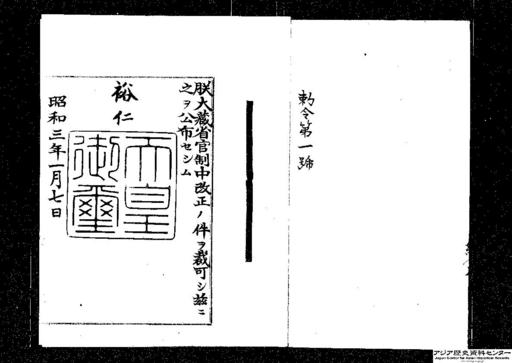 勅令第一號
朕大藏省官制中改正ノ件ヲ裁可シ茲ニ
之ヲ公布セシム
裕仁
天皇御璽
昭和三年一月七日
アジア歴史資料センター
Japan Center for Asian Historical Records